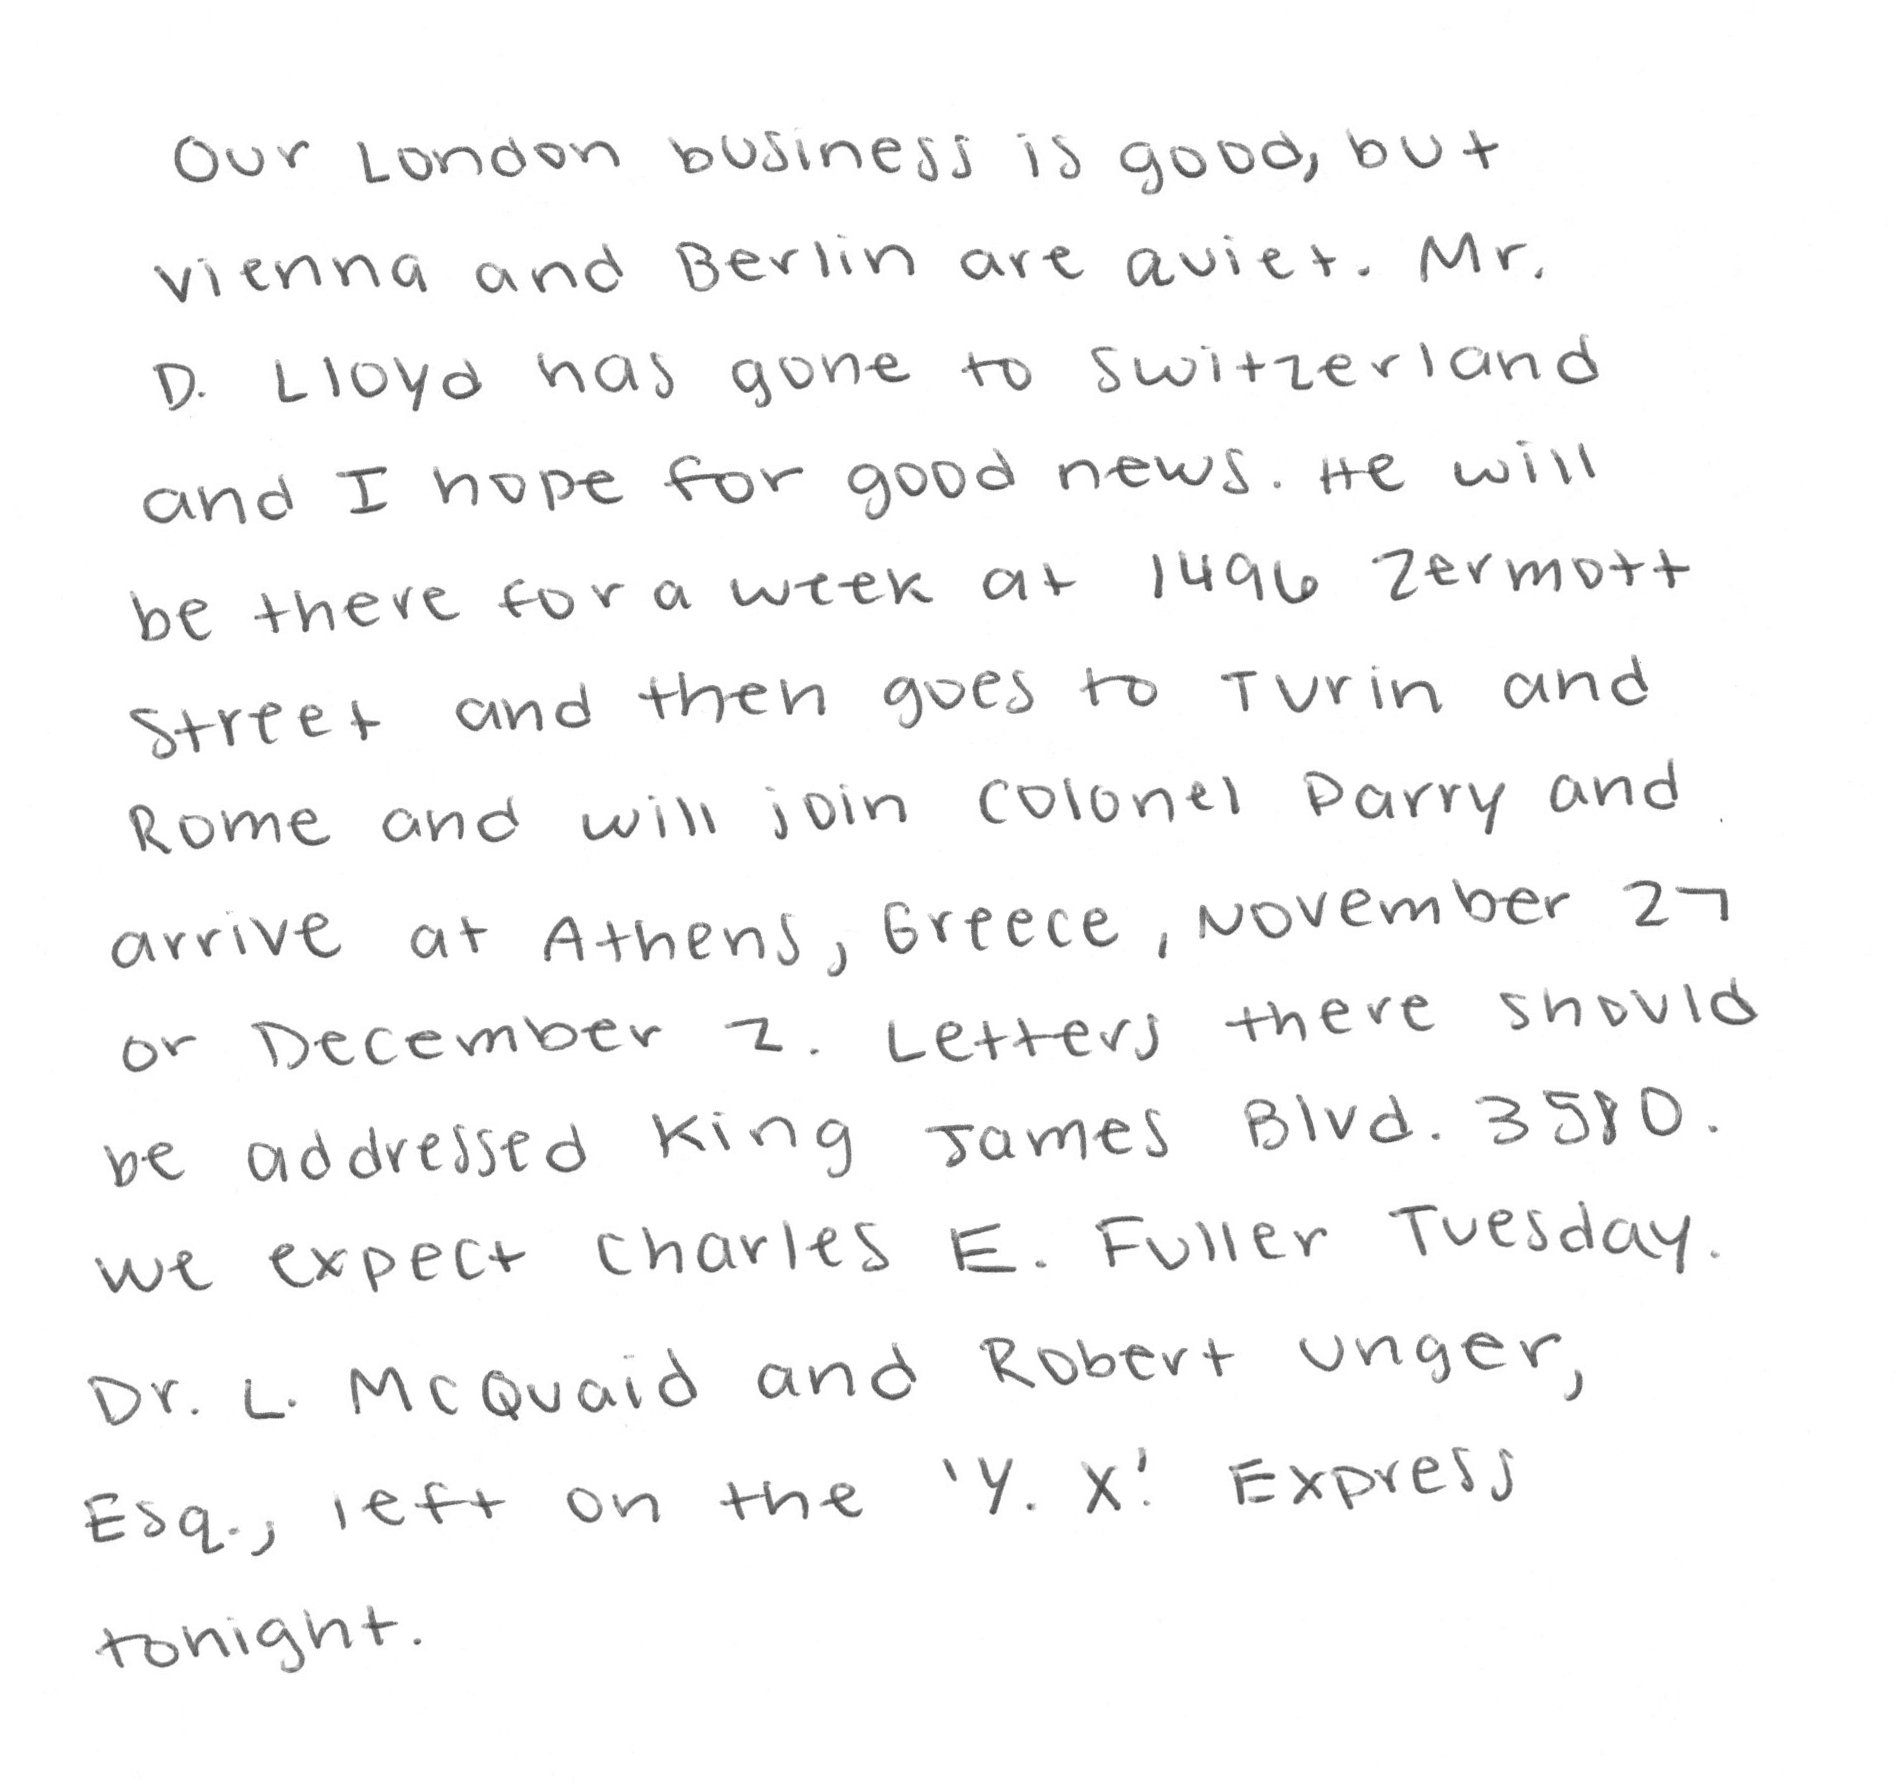 Our London business is good, but
Vienna and Berlin are quiet. Mr.
D. Lloyd has gone to Switzerland
and I hope for good news. He will
be there for a week at 1496 Zermott
Street and then goes to Turin and
Rome and will join Colonel Parry and
arrive at Athens, Greece, November 27
or December 2. Letters there should
be addressed King James Blvd. 3580.
We expect Charles E. Fuller Tuesday.
Dr. L. McQuaid and Robert Unger,
Esq., left on the 'Y. X.' Express
tonight.